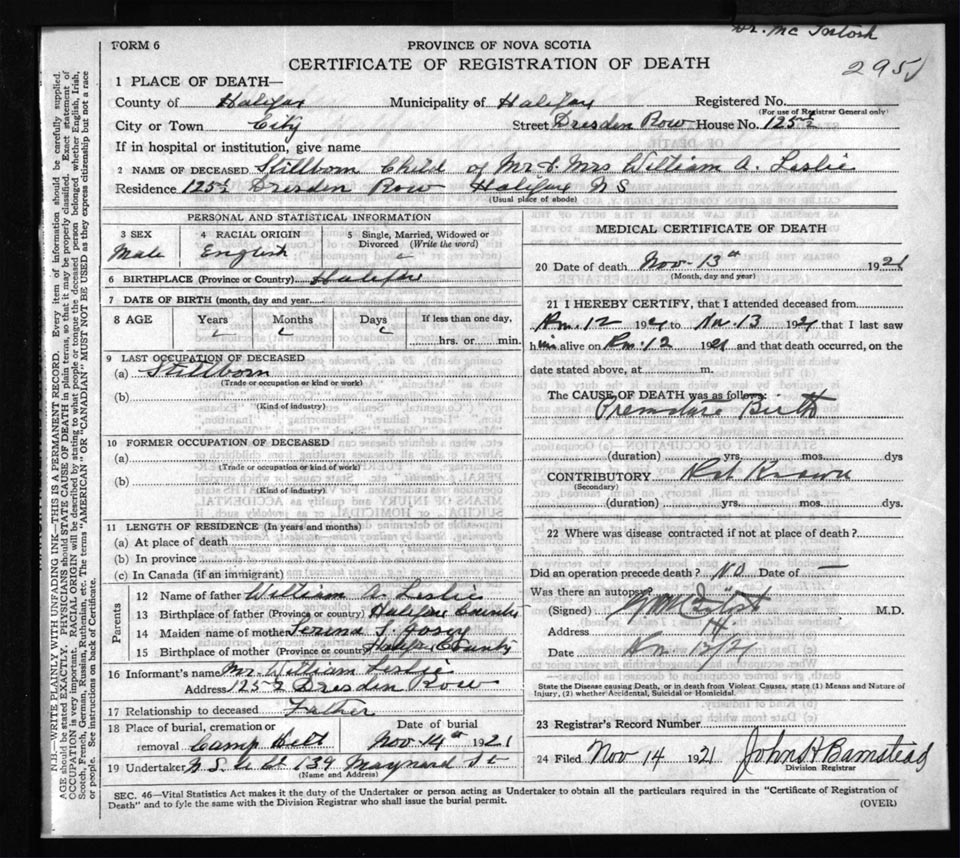 Dr. McIntosh
FORM 6
PROVINCE OF NOVA SCOTIA
CERTIFICATE OF REGISTRATION OF DEATH
295
1 PLACE OF DEATH—
County of Halifax Municipality of Halifax Registered No.
(For use of Registrar General only)
City or Town City Street Dresden Row House No. 125½
If in hospital or institution, give name
2 NAME OF DECEASED Stillborn Child of Mr & Mrs William A. Leslie
Residence 125½ Dresden Row Halifax N S
(Usual place of abode)
PERSONAL AND STATISTICAL INFORMATION
3 SEX 4 RACIAL ORIGIN 5 Single, Married, Widowed or
Divorced (Write the word)
Male English
6 BIRTHPLACE (Province or Country) Halifax
7 DATE OF BIRTH (month, day and year)
8 AGE Years Months Days If less than one day,
hrs. or min.
9 LAST OCCUPATION OF DECEASED
(a) Stillborn
(Trade or occupation or kind or work)
(b)
(Kind of industry)
10 FORMER OCCUPATION OF DECEASED
(a)
(Trade or occupation or kind of work)
(b)
(Kind of industry)
11 LENGTH OF RESIDENCE (In years and months)
(a) At place of death
(b) In province
(c) In Canada (if an immigrant)
Parents
12 Name of father William A. Leslie
13 Birthplace of father (Province or country) Halifax County
14 Maiden name of mother Serena S.
15 Birthplace of mother (Province or country) Halifax County
16 Informant's name Mr. William Leslie
Address 125½ Dresden Row
17 Relationship to deceased Father
18 Place of burial, cremation or Date of burial
removal Camp Hill Nov 14th 1921
19 Undertaker N. S. U Co 139 Maynard St
(Name and Address)
MEDICAL CERTIFICATE OF DEATH
20 Date of death Nov. 13th 1921
(Month, day and year)
21 I HEREBY CERTIFY, that I attended deceased from
12 1921 to Nov. 13 1921 that I last saw
him alive on 12 1921 and that death occurred, on the
date stated above, at m.
The CAUSE OF DEATH was as follows:
Premature Birth
(duration) yrs. mos. dys
CONTRIBUTORY Not Known
(Secondary)
(duration) yrs. mos. dys.
22 Where was disease contracted if not at place of death?
Did an operation precede death? No Date of —
Was there an autopsy?
(Signed) McIntosh M.D.
Address
Date
State the Disease causing Death, or in death from Violent Causes, state (1) Means and Nature of
Injury, (2) whether Accidental, Suicidal or Homicidal.
23 Registrar's Record Number
24 Filed Nov 14 1921 John H Barnstead
Division Registrar
SEC. 46—Vital Statistics Act makes it the duty of the Undertaker or person acting as Undertaker to obtain all the particulars required in the "Certificate of Registration of
Death" and to fyle the same with the Division Registrar who shall issue the burial permit.
(OVER)
N.B.—WRITE PLAINLY WITH UNFADING INK—THIS IS A PERMANENT RECORD. Every item of information should be carefully supplied.
AGE should be stated EXACTLY. PHYSICIANS should STATE CAUSE OF DEATH in plain terms, so that it may be properly classified. Exact statement of
OCCUPATION is very important. RACIAL ORIGIN will be described by stating to what people or tongue the deceased person belonged whether English, Irish,
Scotch, French, German, Russian, Ruthenian, etc. The terms "AMERICAN" OR "CANADIAN" MUST NOT BE USED as they express citizenship but not a race
or people. See instructions on back of Certificate.